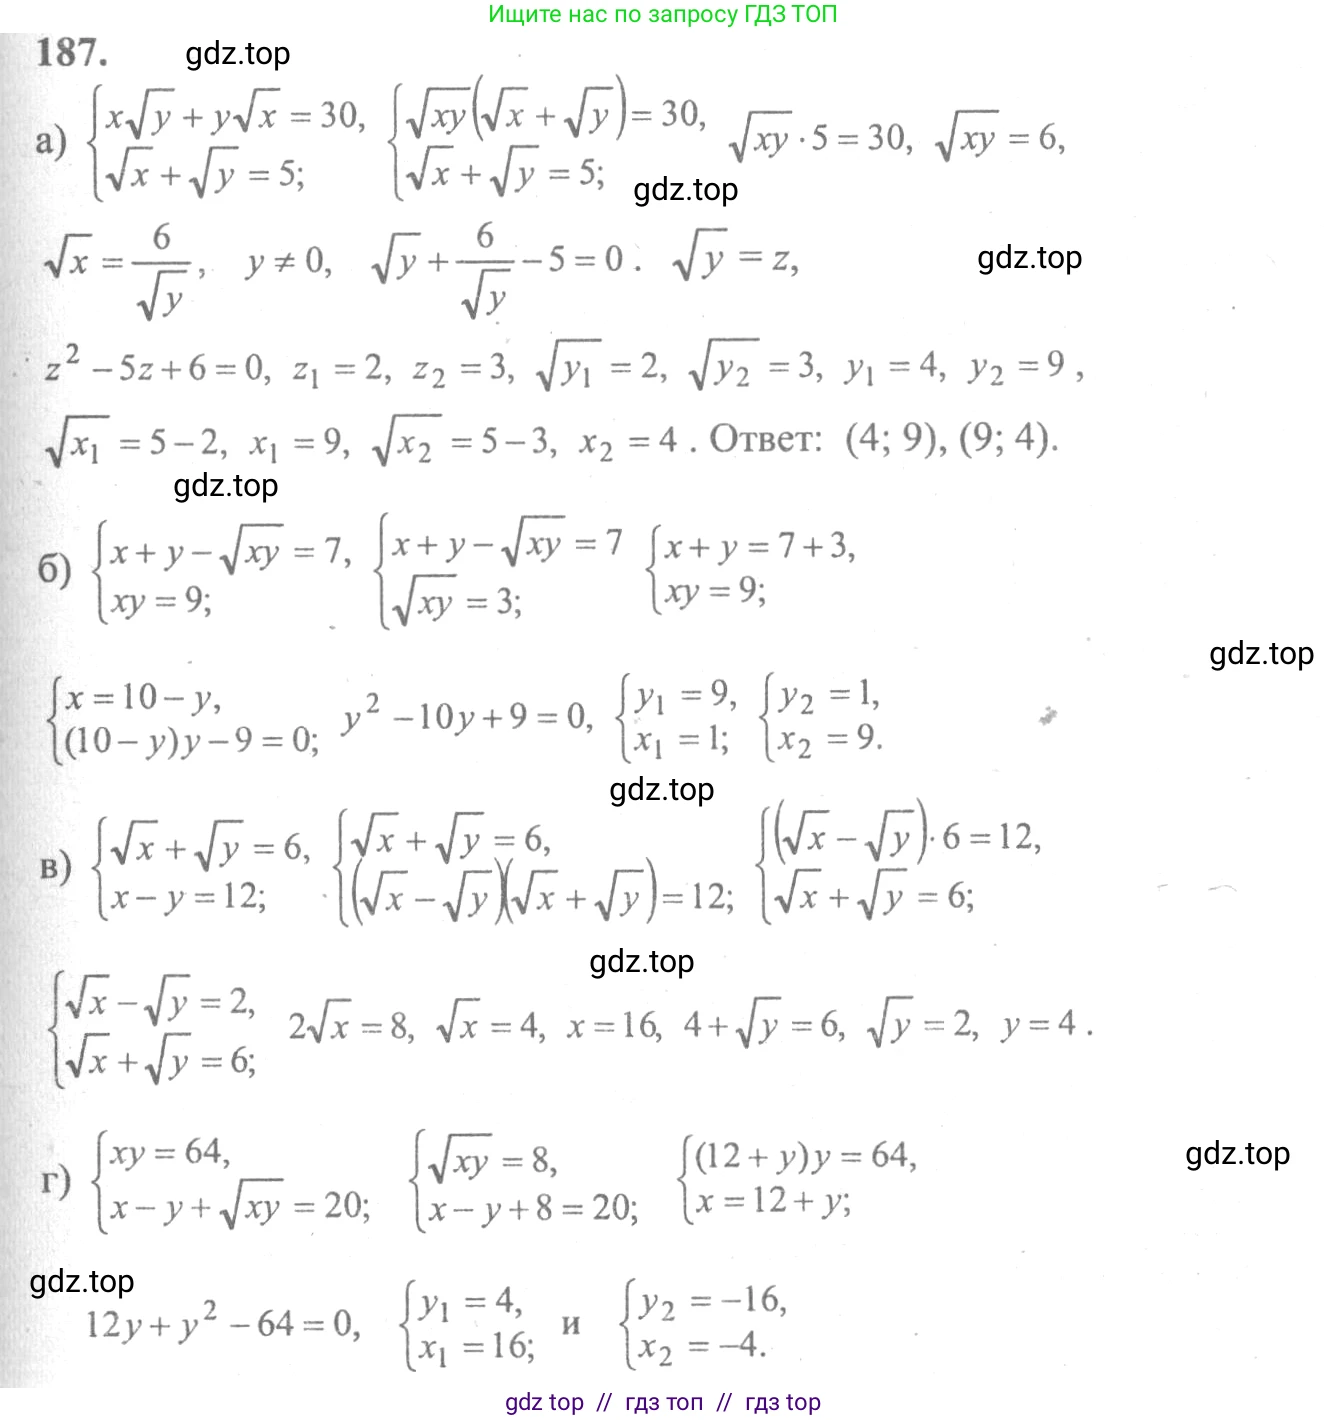 Ищите нас по запросу ГДЗ ТОП
187. gdz.top
а) {x√y + y√x = 30, √x + √y = 5; {√xy(√x + √y) = 30, √x + √y = 5; √xy · 5 = 30, √xy = 6,
gdz.top
√x = 6/√y, y ≠ 0, √y + 6/√y − 5 = 0. √y = z, gdz.top
z² − 5z + 6 = 0, z₁ = 2, z₂ = 3, √y₁ = 2, √y₂ = 3, y₁ = 4, y₂ = 9,
√x₁ = 5 − 2, x₁ = 9, √x₂ = 5 − 3, x₂ = 4. Ответ: (4; 9), (9; 4).
gdz.top
б) {x + y − √xy = 7, xy = 9; {x + y − √xy = 7 √xy = 3; {x + y = 7 + 3, xy = 9;
gdz.top
{x = 10 − y, (10 − y)y − 9 = 0; y² − 10y + 9 = 0, {y₁ = 9, x₁ = 1; {y₂ = 1, x₂ = 9.
gdz.top
в) {√x + √y = 6, x − y = 12; {√x + √y = 6, (√x − √y)(√x + √y) = 12; {(√x − √y) · 6 = 12, √x + √y = 6;
gdz.top
{√x − √y = 2, √x + √y = 6; 2√x = 8, √x = 4, x = 16, 4 + √y = 6, √y = 2, y = 4.
г) {xy = 64, x − y + √xy = 20; {√xy = 8, x − y + 8 = 20; {(12 + y)y = 64, x = 12 + y; gdz.top
gdz.top
12y + y² − 64 = 0, {y₁ = 4, x₁ = 16; и {y₂ = −16, x₂ = −4.
gdz top // гдз топ // гдз top